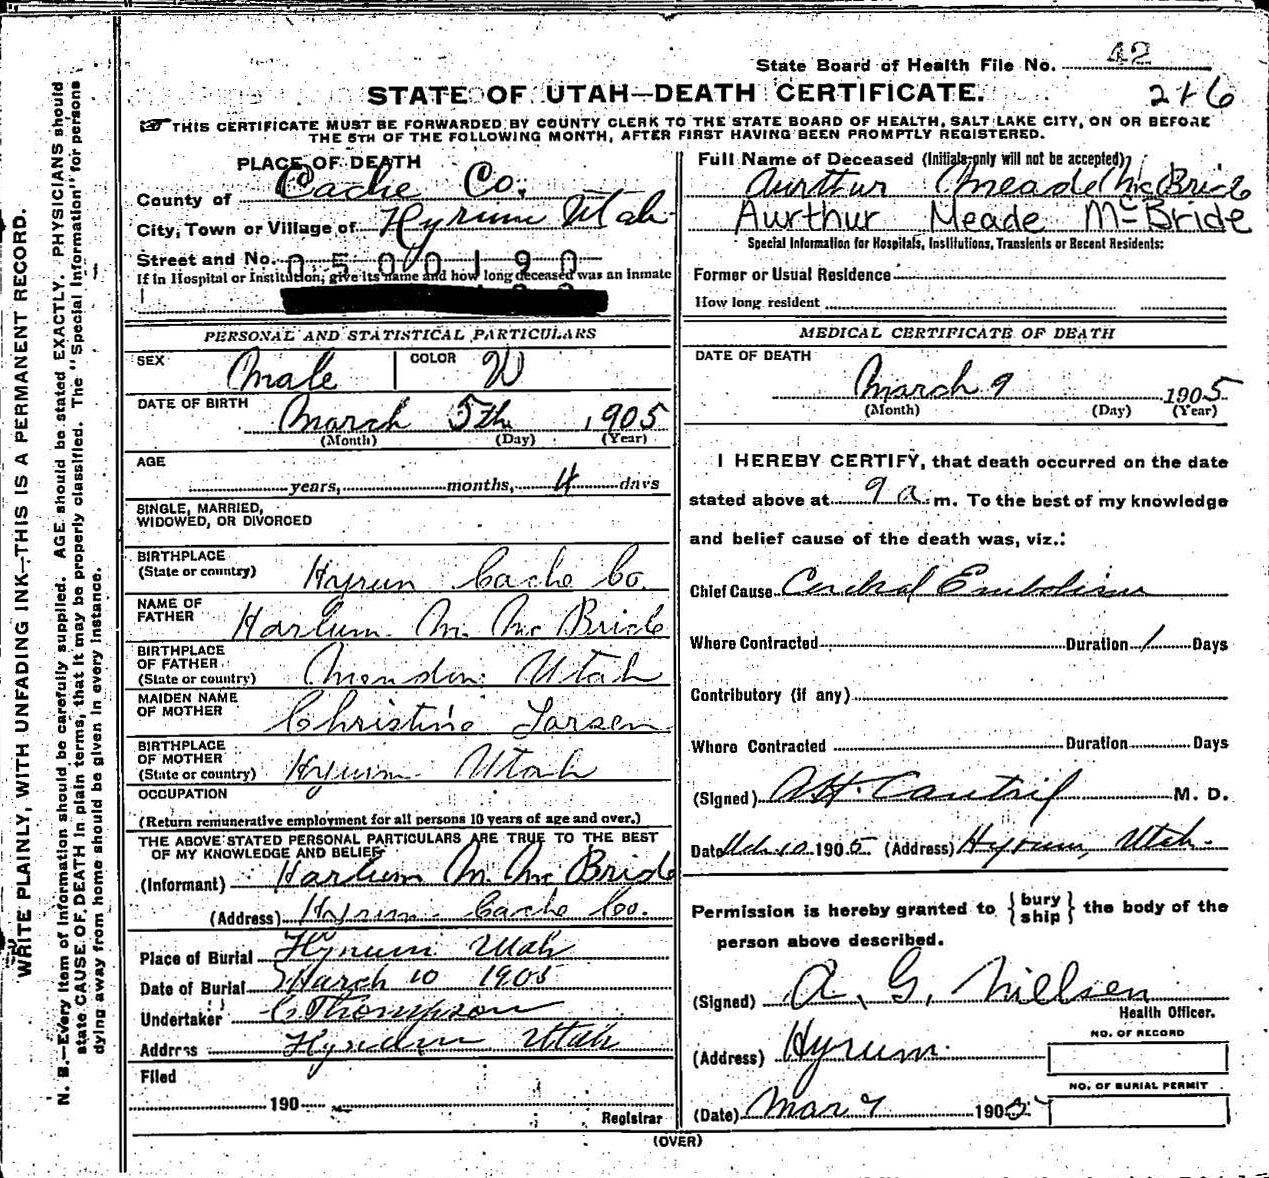 State Board of Health File No. 42
STATE OF UTAH—DEATH CERTIFICATE.
216
THIS CERTIFICATE MUST BE FORWARDED BY COUNTY CLERK TO THE STATE BOARD OF HEALTH, SALT LAKE CITY, ON OR BEFORE
THE 5TH OF THE FOLLOWING MONTH, AFTER FIRST HAVING BEEN PROMPTLY REGISTERED.
PLACE OF DEATH
County of Cache Co.
City, Town or Village of Hyrum Utah
Street and No.
0500190
If in Hospital or Institution, give its name and how long deceased was an inmate
Full Name of Deceased (Initials only will not be accepted)
Aurthur Meade McBride
Aurthur Meade McBride
Special Information for Hospitals, Institutions, Transients or Recent Residents:
Former or Usual Residence
How long resident
PERSONAL AND STATISTICAL PARTICULARS
SEX Male COLOR W
DATE OF BIRTH
March 5th 1905
(Month) (Day) (Year)
AGE
years, months, 4 days
SINGLE, MARRIED,
WIDOWED, OR DIVORCED
BIRTHPLACE
(State or country) Hyrum Cache Co.
NAME OF
FATHER Harlum M. McBride
BIRTHPLACE
OF FATHER
(State or country) Mendon Utah
MAIDEN NAME
OF MOTHER Christine Larsen
BIRTHPLACE
OF MOTHER
(State or country) Hyrum Utah
OCCUPATION
(Return remunerative employment for all persons 10 years of age and over.)
THE ABOVE STATED PERSONAL PARTICULARS ARE TRUE TO THE BEST
OF MY KNOWLEDGE AND BELIEF
(Informant) Harlum M. McBride
(Address) Hyrum Cache Co.
Place of Burial Hyrum Utah
Date of Burial March 10 1905
Undertaker C Thompson
Address Utah
Filed
190
Registrar
MEDICAL CERTIFICATE OF DEATH
DATE OF DEATH
March 9 1905
(Month) (Day) (Year)
I HEREBY CERTIFY, that death occurred on the date
stated above at 9 a. m. To the best of my knowledge
and belief cause of the death was, viz.:
Chief Cause Cerebral Embolism
Where Contracted Duration 1 Days
Contributory (if any)
Where Contracted Duration Days
(Signed) M. D.
Date Mch 10 1905 (Address) Hyrum, Utah.
Permission is hereby granted to {bury
ship} the body of the
person above described.
(Signed) A. G. Nielsen
Health Officer.
(Address) Hyrum
NO. OF RECORD
NO. OF BURIAL PERMIT
(Date) Mar 9 1905
(OVER)
WRITE PLAINLY, WITH UNFADING INK—THIS IS A PERMANENT RECORD.
N. B.—Every item of information should be carefully supplied. AGE should be stated EXACTLY. PHYSICIANS should
state CAUSE OF DEATH in plain terms, that it may be properly classified. The "Special Information" for persons
dying away from home should be given in every instance.